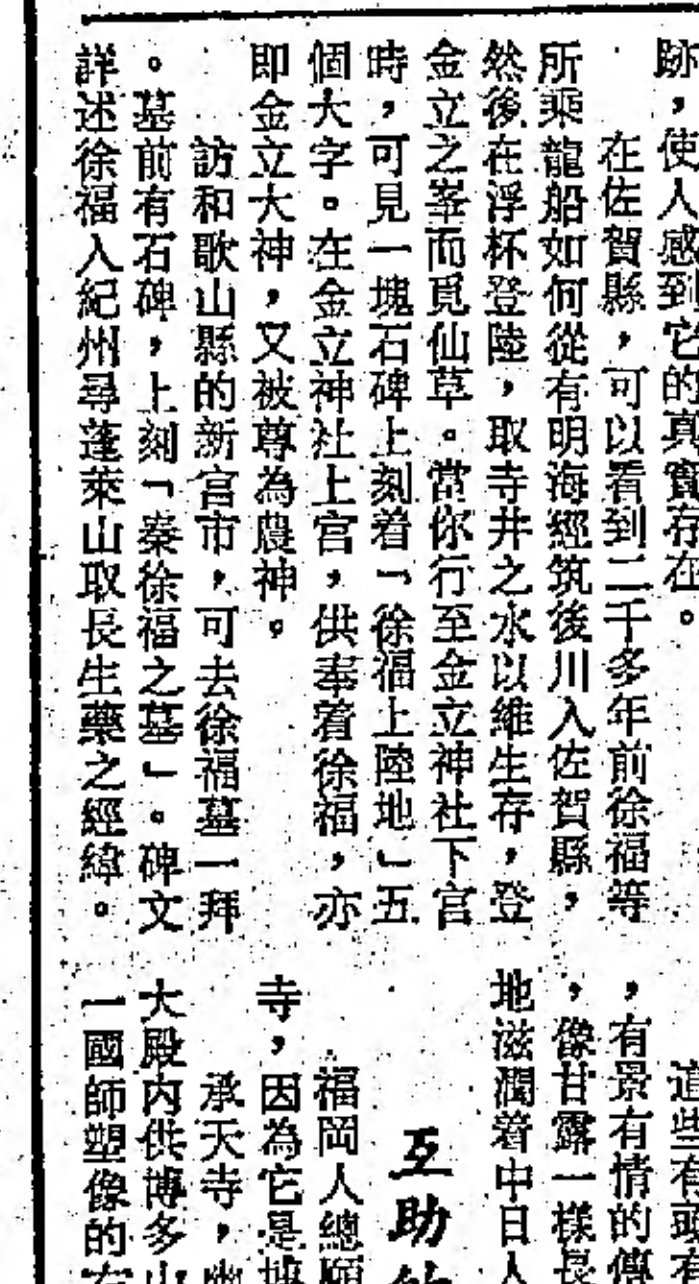 跡，使人感到它的真實存在。
在佐賀縣，可以看到二千多年前徐福等
所乘龍船如何從有明海經筑後川入佐賀縣，
然後在浮杯登陸，取寺井之水以維生存，登
金立之峯而覓仙草。當你行至金立神社下宮
時，可見一塊石碑上刻着「徐福上陸地」五
個大字。在金立神社上宮，供奉着徐福，亦
即金立大神，又被尊為農神。
訪和歌山縣的新宮市，可去徐福墓一拜
。墓前有石碑，上刻「秦徐福之墓」。碑文
詳述徐福入紀州尋蓬萊山取長生藥之經緯。
這些有頭有
，有景有情的傳
，像甘露一樣長
地滋潤着中日人
互助
福岡人總願
寺，因為它是
承天寺，
大殿內供博多山
一國師塑像的